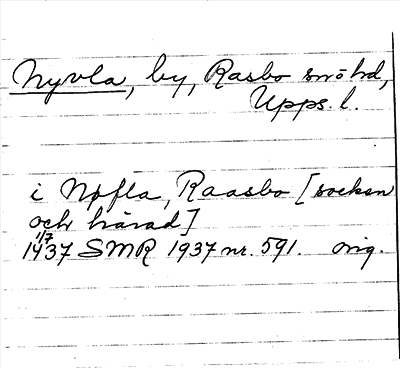 Nyvla, by, Rasbo sn o hd,
Upps. l.
i Nøfla, Raasbo [socken
och härad]
1/7
1437 SMR 1937 nr. 591. orig.